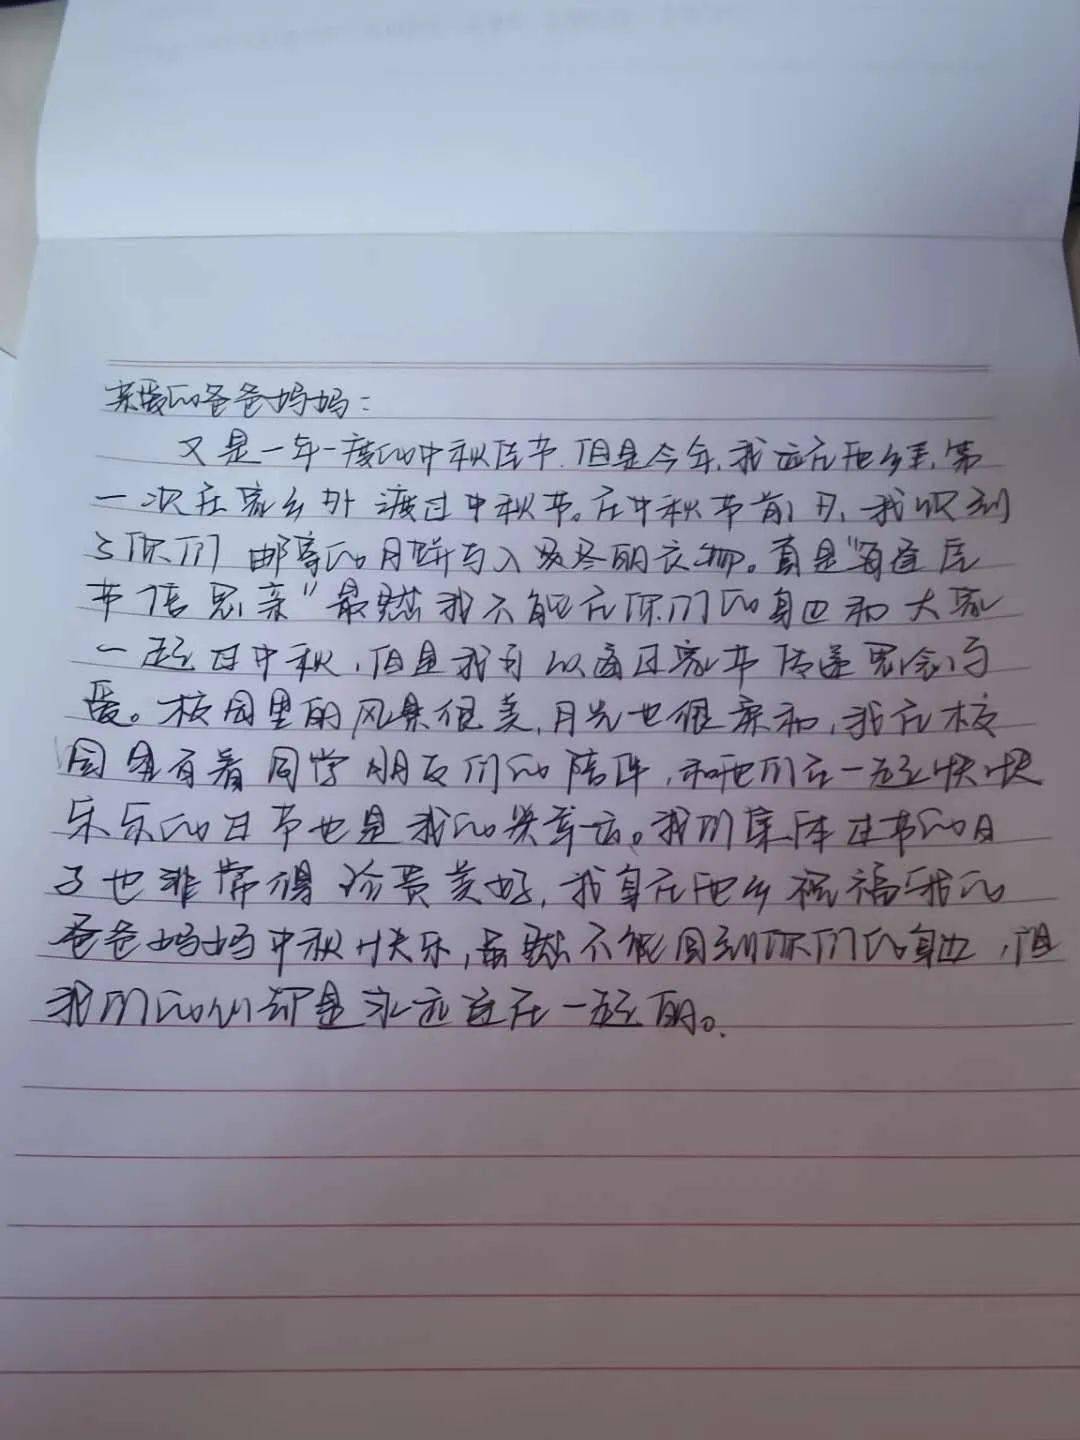 亲爱的爸爸妈妈：
又是一年一度的中秋佳节，但是今年，我远在他乡，第
一次在家乡外渡过中秋节。在中秋节前夕，我收到
了你们邮寄的月饼与入冬的衣物。真是“每逢佳
节倍思亲”虽然我不能在你们的身边和大家
一起过中秋，但是我可以通过家书传递思念与
爱。校园里的风景很美，月光也很柔和，我在校
园里有着同学朋友们的陪伴，和他们在一起快快
乐乐的过节也是我的荣幸。我们集体过节的日
子也非常得珍贵美好，我身在他乡祝福我的
爸爸妈妈中秋快乐，虽然不能回到你们的身边，但
我们的心却是永远连在一起的。